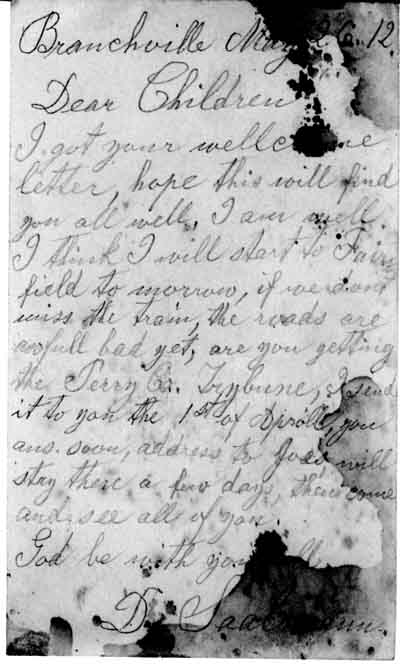 Branchville May 26. 12.
Dear Children
I got your wellcome
letter, hope this will find
you all well, I am well.
I think I will start to Fair
field to morrow, if we dont
miss the train, the roads are
awfull bad yet, are you getting
the Perry Co. Trybune, I send
it to you the 1st of Aproll, you
ans. soon, address to Joes, will
stay there a few days, then come
and see all of you.
God be with you all
D.